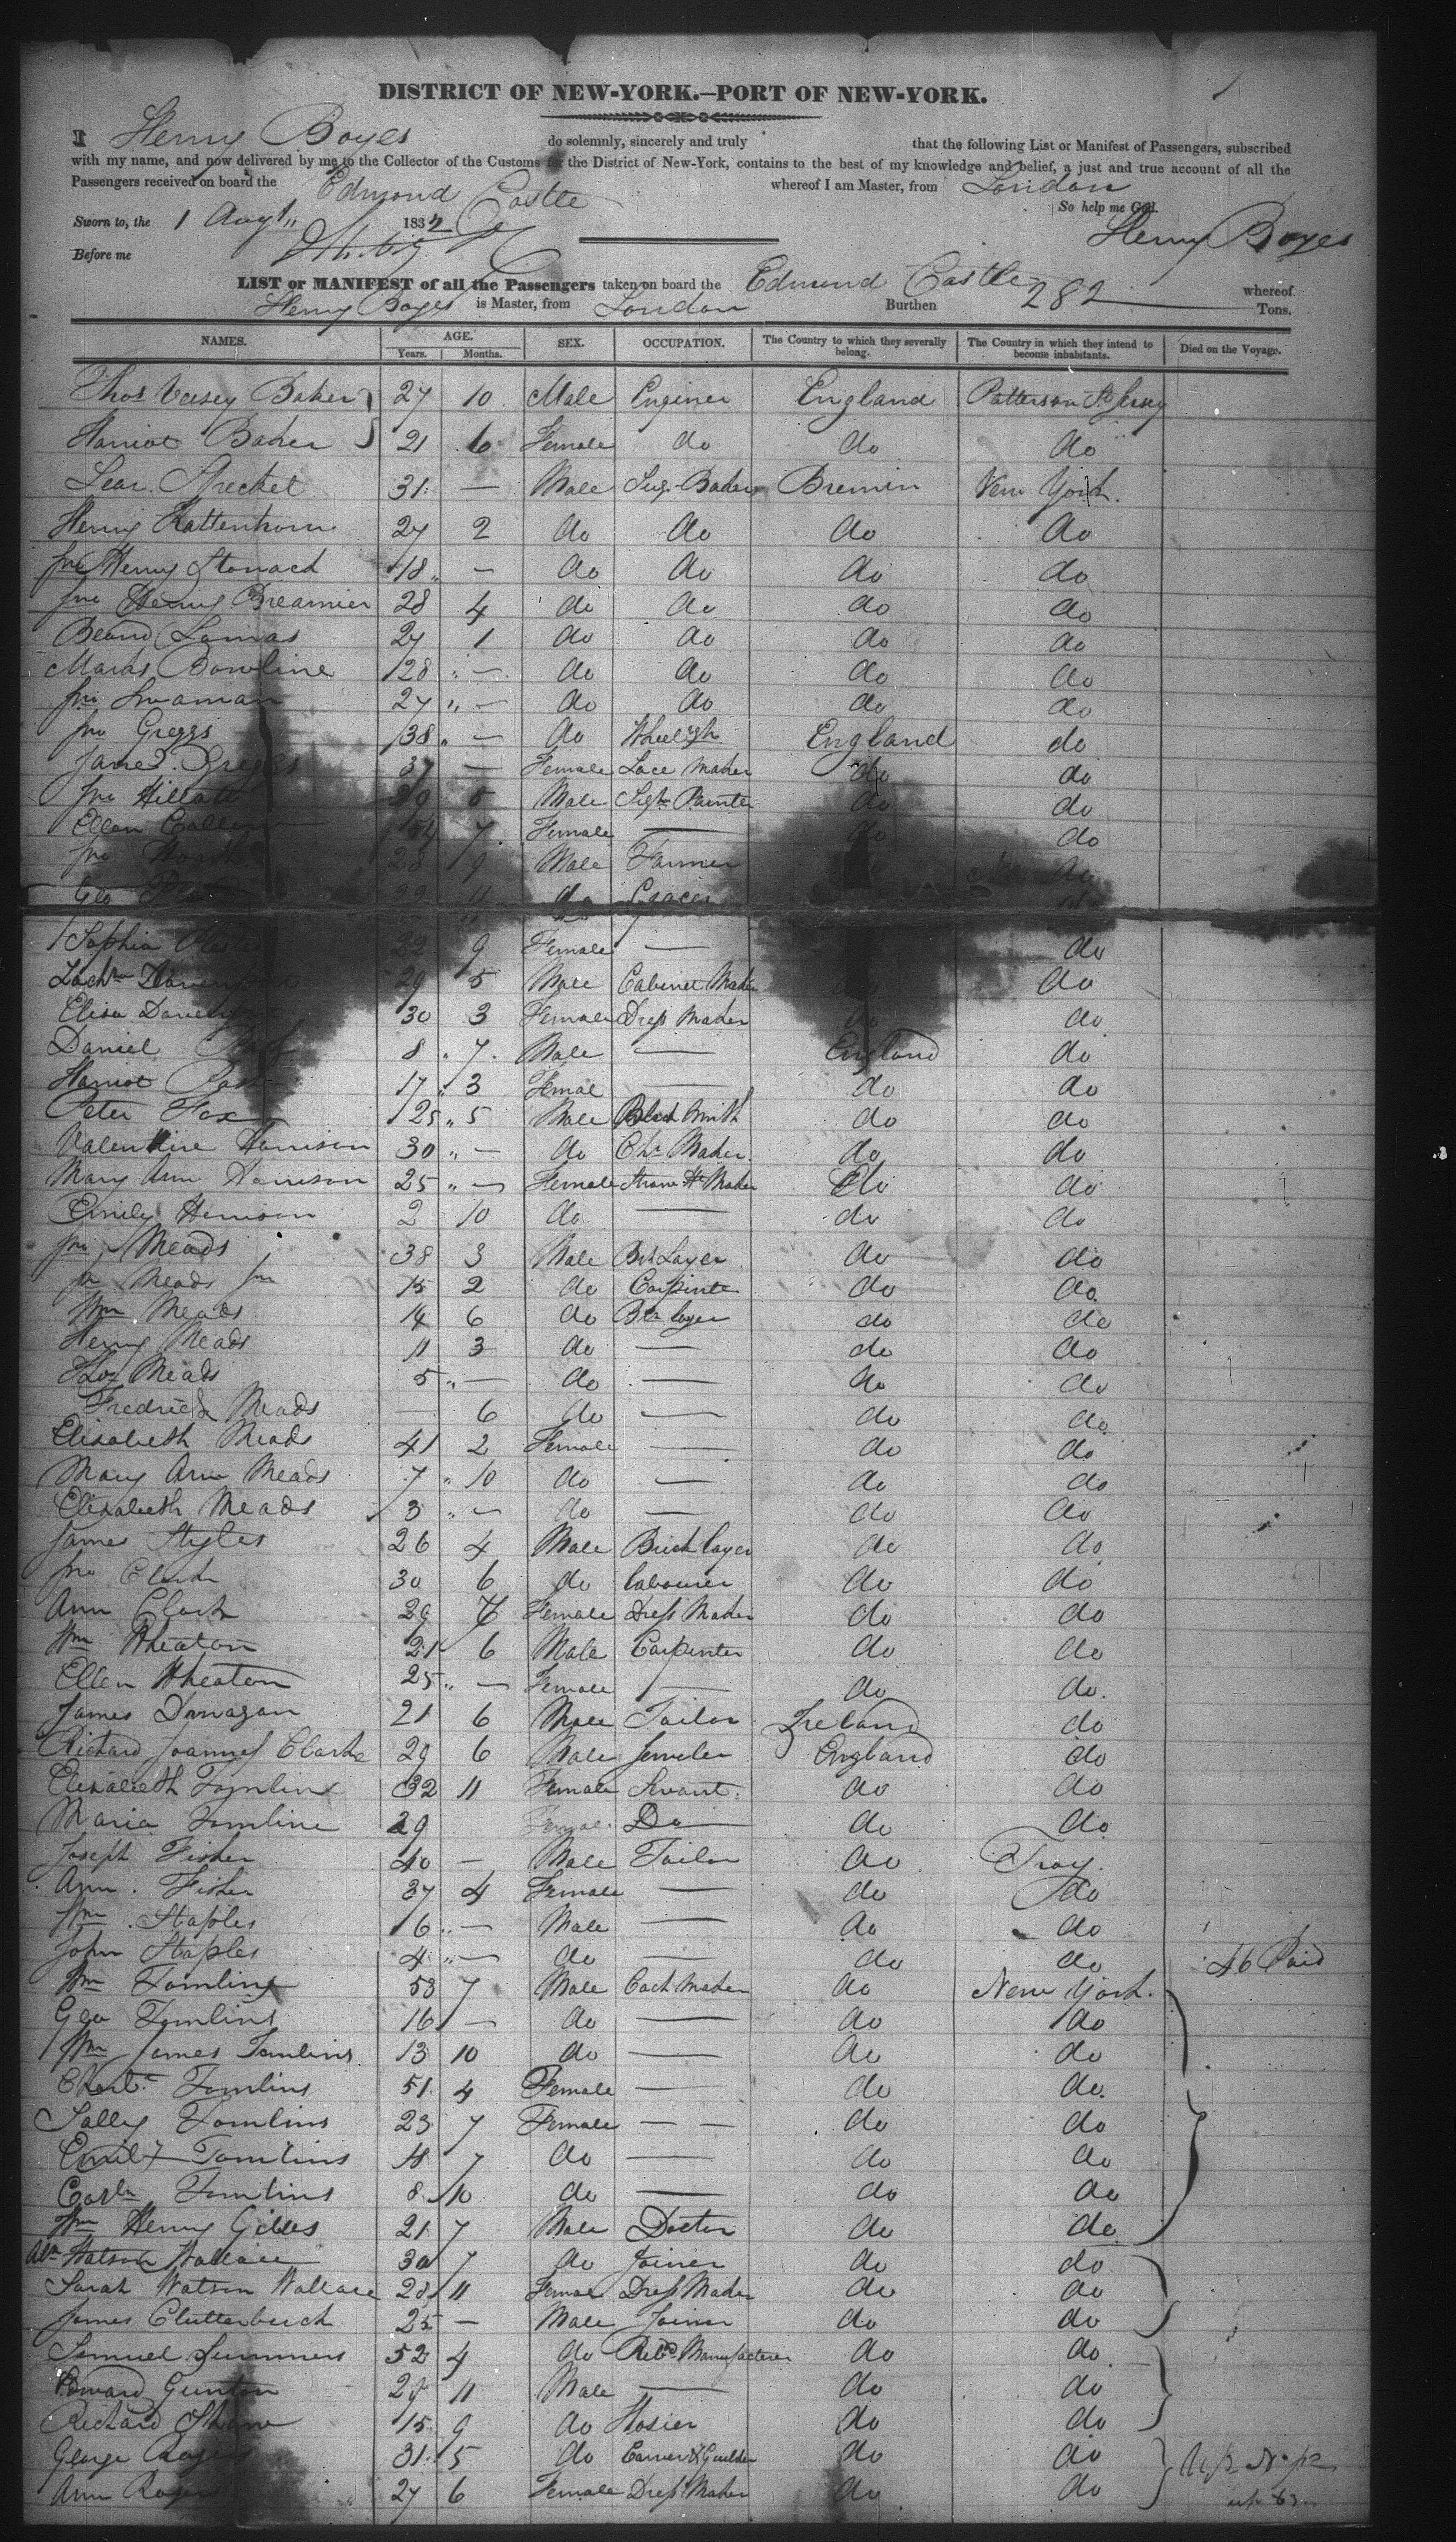 DISTRICT OF NEW-YORK.—PORT OF NEW-YORK.
I Henry Boyes do solemnly, sincerely and truly that the following List or Manifest of Passengers, subscribed
with my name, and now delivered by me to the Collector of the Customs for the District of New-York, contains to the best of my knowledge and belief, a just and true account of all the
Passengers received on board the Edmond Castle whereof I am Master, from London
So help me God.
Sworn to, the 1 Augt 1834 Henry Boyes
Before me
LIST or MANIFEST of all the Passengers taken on board the Edmund Castle whereof
Henry Boyes is Master, from London Burthen 282 Tons.
NAMES. AGE. SEX. OCCUPATION. The Country to which they severally belong. The Country in which they intend to become inhabitants. Died on the Voyage.
Years. Months.
Thos Versey Baker 27 10 Male Enginer England Patterson N Jersey
Harriot Baker 21 6 Female do do do
Strecket 31 — Male Sug. Baker Bremin New York.
Henry Kattenhorn 27 2 do do do do
Jno Henry Stonach 18 " — do do do do
Jno Henry Breamier 28 4 do do do do
Lamas 27 1 do do do do
Marks Bowline 28 " — do do do do
Jno Swaman 27 " — do do do do
Jno Greggs 38 " — do England do
Jane Greggs 37 — Female Lace Maker do do
Jno 5 Male Painter do do
Ellen 7 Female — do do
Jno 28 9 Male Farmer do
Geo 11 do Grocer
Sophia 22 9 Female — do
29 5 Male Cabinet Maker do do
Elisa 30 3 Female Dress Maker do do
Daniel 8 " 7 Male — England do
Harriot 17 " 3 Femal — do do
Peter Fox 25 " 5 Male Black Smith do do
Valentine Harrison 30 " — do Chr Maker do do
Mary Ann Harrison 25 " — Female Straw Ht Maker do do
Emily Harrison 2 10 do — do do
Jno Meads 38 3 Male Bk Layer do do
Jn Meads Jnr 15 2 do Carpinte do do
Wm Meads 14 6 do Bk layer do do
Henry Meads 11 3 do — do do
Thos Meads 5 " — do — do do
Fredrick Meads — 6 do — do do
Elisabeth Meads 41 2 Female — do do
Mary Ann Meads 7 " 10 do — do do
Elisabeth Meads 3 " — do — do do
James Styles 26 4 Male Brick layer do do
Jno Clark 30 6 do labourer do do
Ann Clark 29 7 Female Dress Maker do do
Wm Wheaton 21 6 Male Carpenter do do
Ellen Wheaton 25 " — Female — do do
James Donagan 21 6 Male Tailor Ireland do
Richard Clarke 29 6 Male Jeweler England do
Elisabeth Tomlins 32 11 Female Servant do do
Maria Tomline 29 Female Do do do
Joseph Fisher 40 — Male Tailor do Troy.
Ann Fisher 37 4 Female — do do
Wm Staples 6 " — Male — do do
John Staples 4 " — do — do do 46 Paid
Wm Tomlins 53 7 Male Coch Maker do New York.
Geo Tomlins 16 — do — do do
Wm James Tomlins 13 10 do — do do
Charlt Tomlins 51 4 Female — do do
Sally Tomlins 23 7 Female — — do do
Emily Tomlins 18 7 do — do do
Carln Tomlins 8 10 do — do do
Wm Henry Gilles 21 7 Male Doctor do do
Alr Watson Wallace 30 7 do Joiner do do
Sarah Watson Wallace 28 11 Femal Dress Maker do do
James Clutterbuck 25 — Male Joiner do do
Samuel Summers 52 4 do Manufacturer do do
Edward Gunton 29 11 Male — do do
Richard Shaw 15 9 do Hosier do do
George Rogers 31 5 do Carver & Guilder do do
Ann Rogers 27 6 Female Dress Maker do do